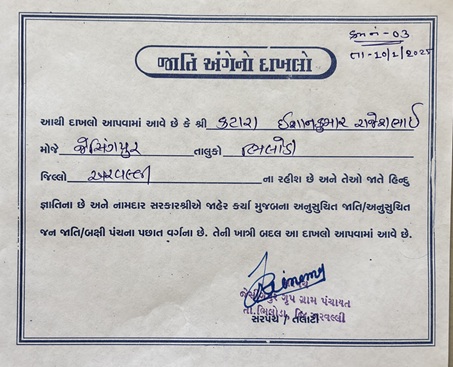 ક્રમ નં - 03
તા - 10/1/2025
જાતિ અંગેનો દાખલો
આથી દાખલો આપવામાં આવે છે કે શ્રી કટારા ઈશાનકુમાર રાજેશભાઈ
મોજે જેસિંગપુર તાલુકો ભિલોડા
જિલ્લો અરવલ્લી ના રહીશ છે અને તેઓ જાતે હિન્દુ
જ્ઞાતિના છે અને નામદાર સરકારશ્રીએ જાહેર કર્યા મુજબના અનુસુચિત જાતિ/અનુસુચિત
જન જાતિ/બક્ષી પંચના પછાત વર્ગના છે. તેની ખાત્રી બદલ આ દાખલો આપવામાં આવે છે.
ગૃપ ગ્રામ પંચાયત
તા. ભિલોડા, જિ. અરવલ્લી
સરપંચ / તલાટી